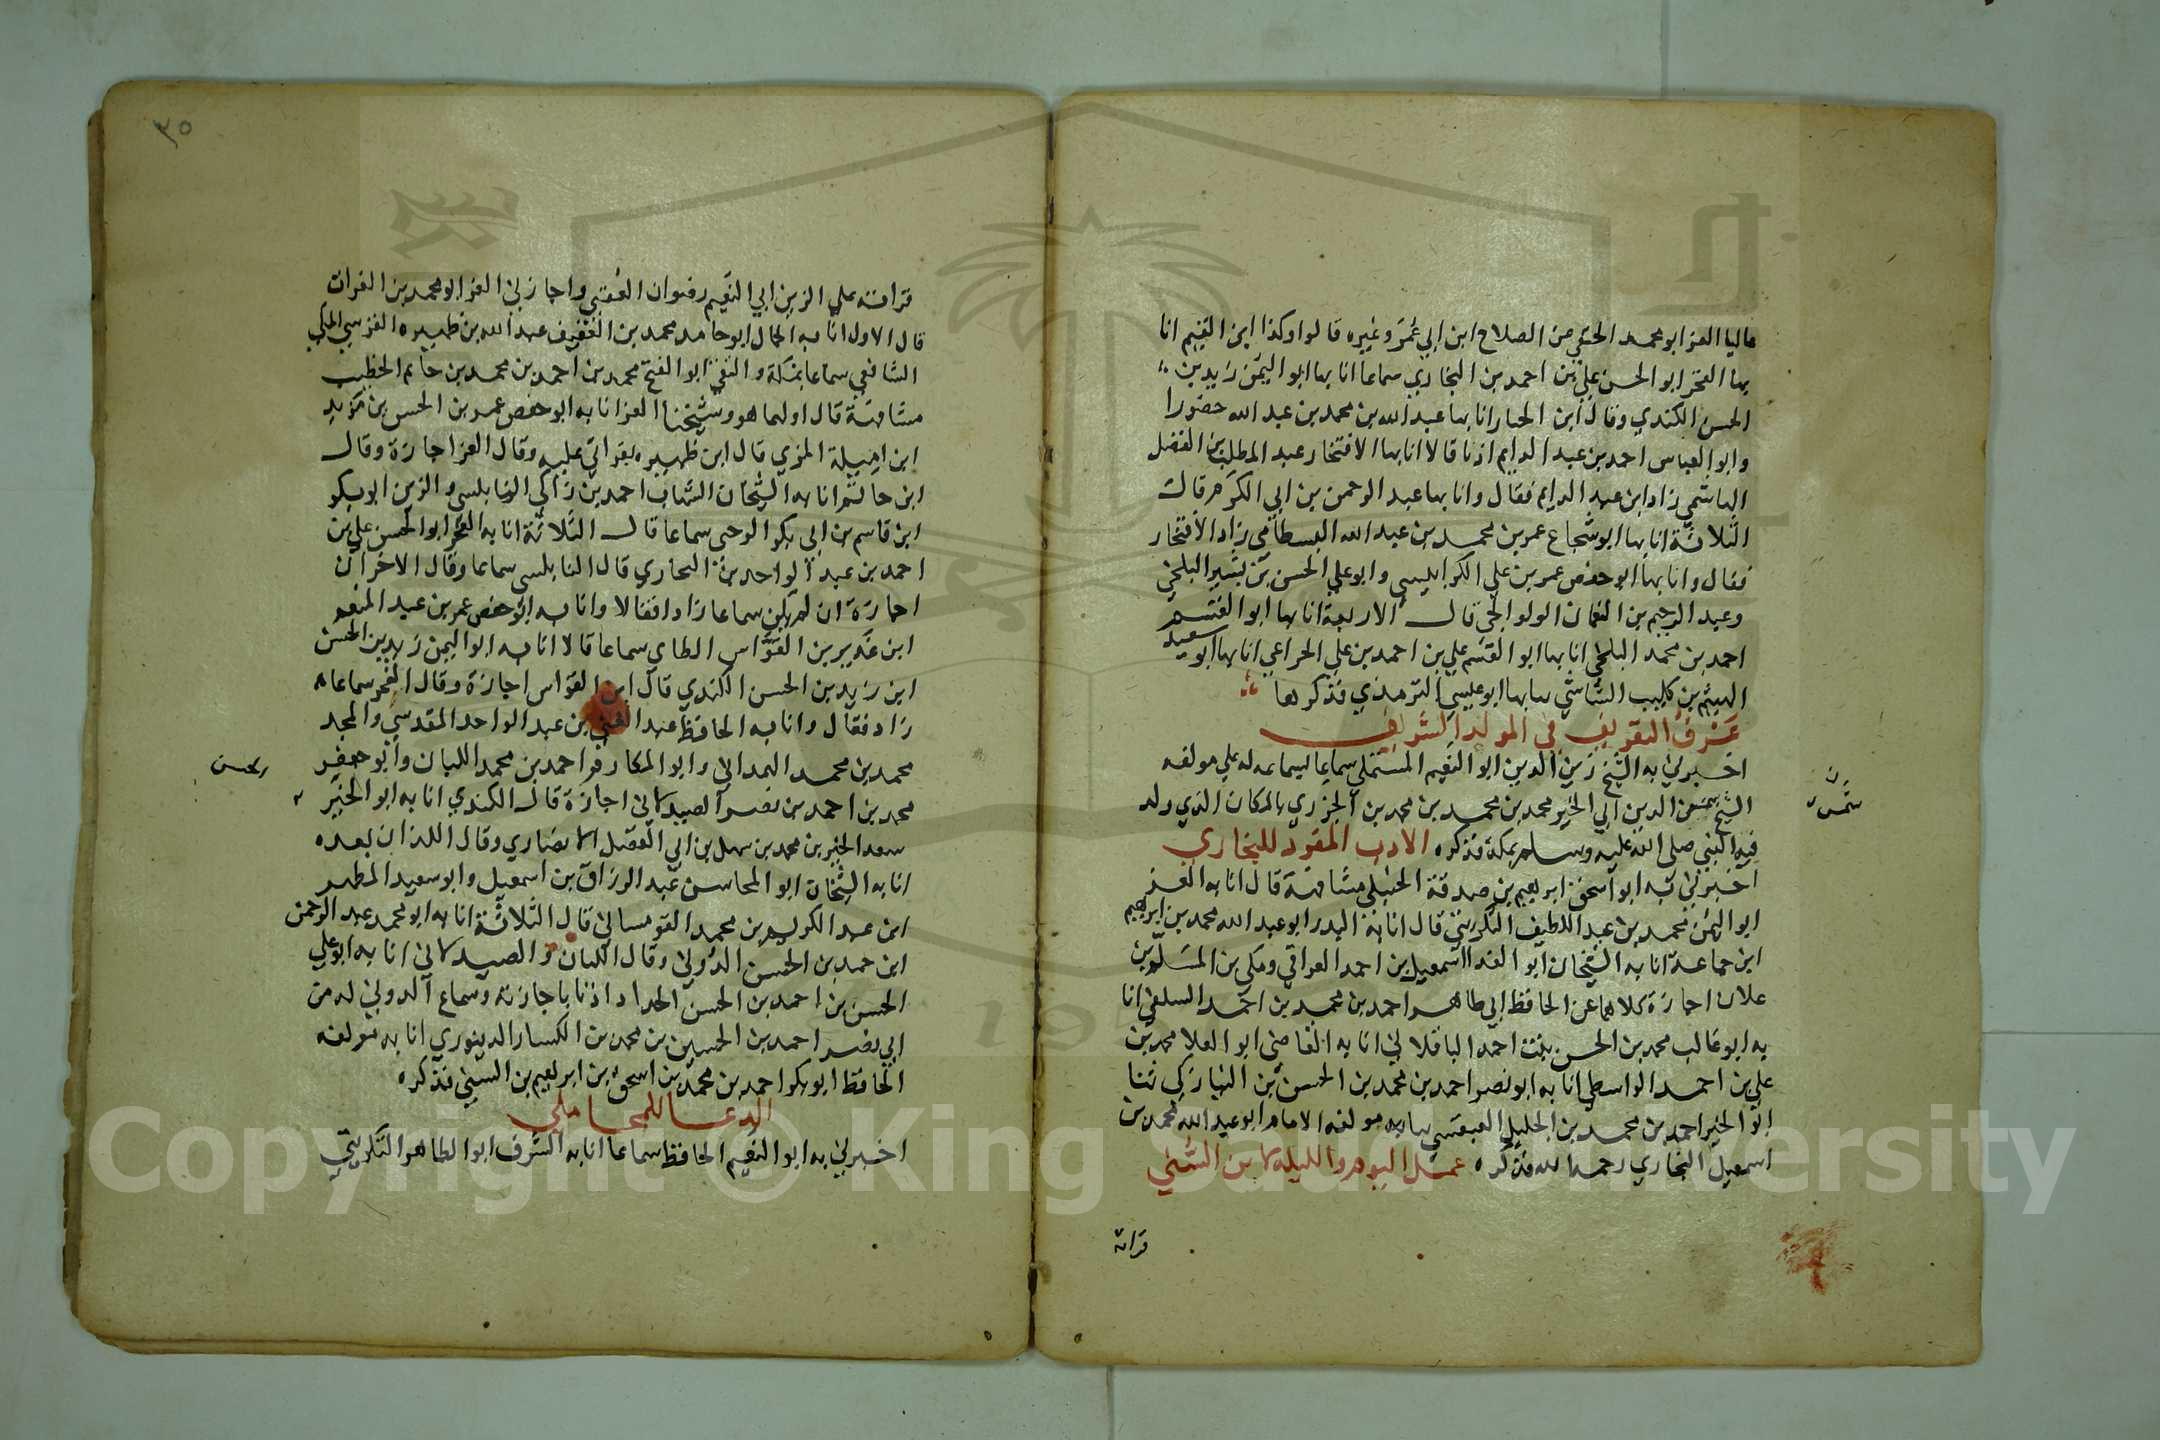 عاليا العز ابو محمد الحنفي عن الصلاح ابن ابي عمر وغيره قالوا وكذا ابن القيم انا
بها الفخر ابو الحسن علي بن احمد بن البخاري سماعا انا بها ابو اليمن زيد بن
الحسن الكندي وقال ابن الخباز انا بها عبد الله بن محمد بن عبد الله حضورا
وابو العباس احمد بن عبد الدايم اذنا قالا انا بها الافتخار عبد المطلب بن الفضل
الهاشمي زاد ابن عبد الدايم فقال وانا بها عبد الرحمن بن ابي الكرم قال
الثلاثة انا بها ابو شجاع عمر بن محمد بن عبد الله البسطامي زاد الافتخار
فقال وانا بها ابو حفص عمر بن علي الكرابيسي وابو علي الحسن بن بشير البلخي
وعبد الرحيم بن النعمان الولوالجي قال الاربعة انا بها ابو القسم
احمد بن محمد البلخي انا بها ابو القسم علي بن احمد بن علي الخزاعي انا بها ابو سعيد
الهيثم بن كليب الشاشي بها ابو عيسي الترمذي فذكرها
عرف التعريف في المولد الشريف
اخبرني به الشيخ زين الدين ابو النعيم المستملي سماعا لسماعه له علي مولفه
الشيخ شمس الدين ابي الخير محمد بن محمد بن محمد بن الجزري بالمكان الذي ولد
فيه النبي صلي الله عليه وسلم بمكة فذكره الادب المفرد للبخاري
اخبرني به ابو اسحق ابرهيم بن صدقة الحنبلي مشافهة قال انا به العز
ابو اليمن محمد بن عبد اللطيف التكريتي قال انا به البدر ابو عبد الله محمد بن ابرهيم
ابن جماعة انا به الشيخان ابو الفدا اسمعيل بن احمد العراقي ومكي بن المسلم بن
علان اجازة كلاهما عن الحافظ ابي طاهر احمد بن محمد بن احمد السلفي انا
به ابو غالب محمد بن الحسن بن احمد الباقلاني انا به القاضي ابو العلا محمد بن
علي بن احمد الواسطي انا به ابو نصر احمد بن محمد بن الحسن بن النيازكي ثنا
ابو الخير احمد بن محمد بن الجليل العبقسي به مولفه الامام ابو عبد الله محمد بن
اسمعيل البخاري رحمه الله فذكره عمل اليوم والليلة لابن السني
شمس
قراته
٣٥
قراته علي الزين ابي النعيم رضوان العقبي واجاز لي العز ابو محمد بن الفرات
قال الاول انا به الجمال ابو حامد محمد بن العفيف عبد الله بن ظهيره القرشي المكي
الشافعي سماعا بمكة والتقي ابو الفتح محمد بن احمد بن محمد بن حاتم الخطيب
مشافهة قال اولهما هو وشيخنا العز انا به ابو حفص عمر بن الحسن بن مزيد
ابن اميلة المزي قال ابن ظهيره بقراتي عليه وقال العز اجازة وقال
ابن حاتم انا به الشيخان الشهاب احمد بن زاكي النابلسي والزين ابو بكر
ابن قاسم بن ابي بكر الرحبي سماعا قال الثلاثة انا به الفخر ابو الحسن علي بن
احمد بن عبد الواحد بن البخاري قال النابلسي سماعا وقال الاخران
اجازة ان لم يكن سماعا زادا فقالا وانا به ابو حفص عمر بن عبد المنعم
ابن غدير بن القواس الطاي سماعا قالا انا به ابو اليمن زيد بن الحسن
ابن زيد بن الحسن الكندي قال ابن القواس اجازة وقال الفخر سماعا
زاد فقال وانا به الحافظ عبد الغني بن عبد الواحد المقدسي والمجد
محمد بن محمد الهمداني وابو المكارم احمد بن محمد اللبان وابو جعفر
محمد بن احمد بن نصر الصيدلاني اجازة قال الكندي انا به ابو الخير
سعد الخير بن محمد بن سهل بن ابي الفضل الانصاري وقال اللذان بعده
انا به الشيخان ابو المحاسن عبد الرزاق بن اسمعيل وابو سعيد المطهر
ابن عبد الكريم بن محمد القومساني قال الثلاثة انا به ابو محمد عبد الرحمن
ابن حمد بن الحسن الدوني وقال اللبان والصيدلاني انا به ابو علي
الحسن بن احمد بن الحسن الحداد اذنا باجازته وسماع الدوني له من
ابي نصر احمد بن الحسين بن محمد بن الكسار الدينوري انا به مولفه
الحافظ ابو بكر احمد بن محمد بن اسحق بن ابرهيم بن السني فذكره
الدعا للمحاملي
اخبرني به ابو النعيم الحافظ سماعا انا به الشرف ابو الطاهر التكريتي
الحسن
Copyright © King Saud University